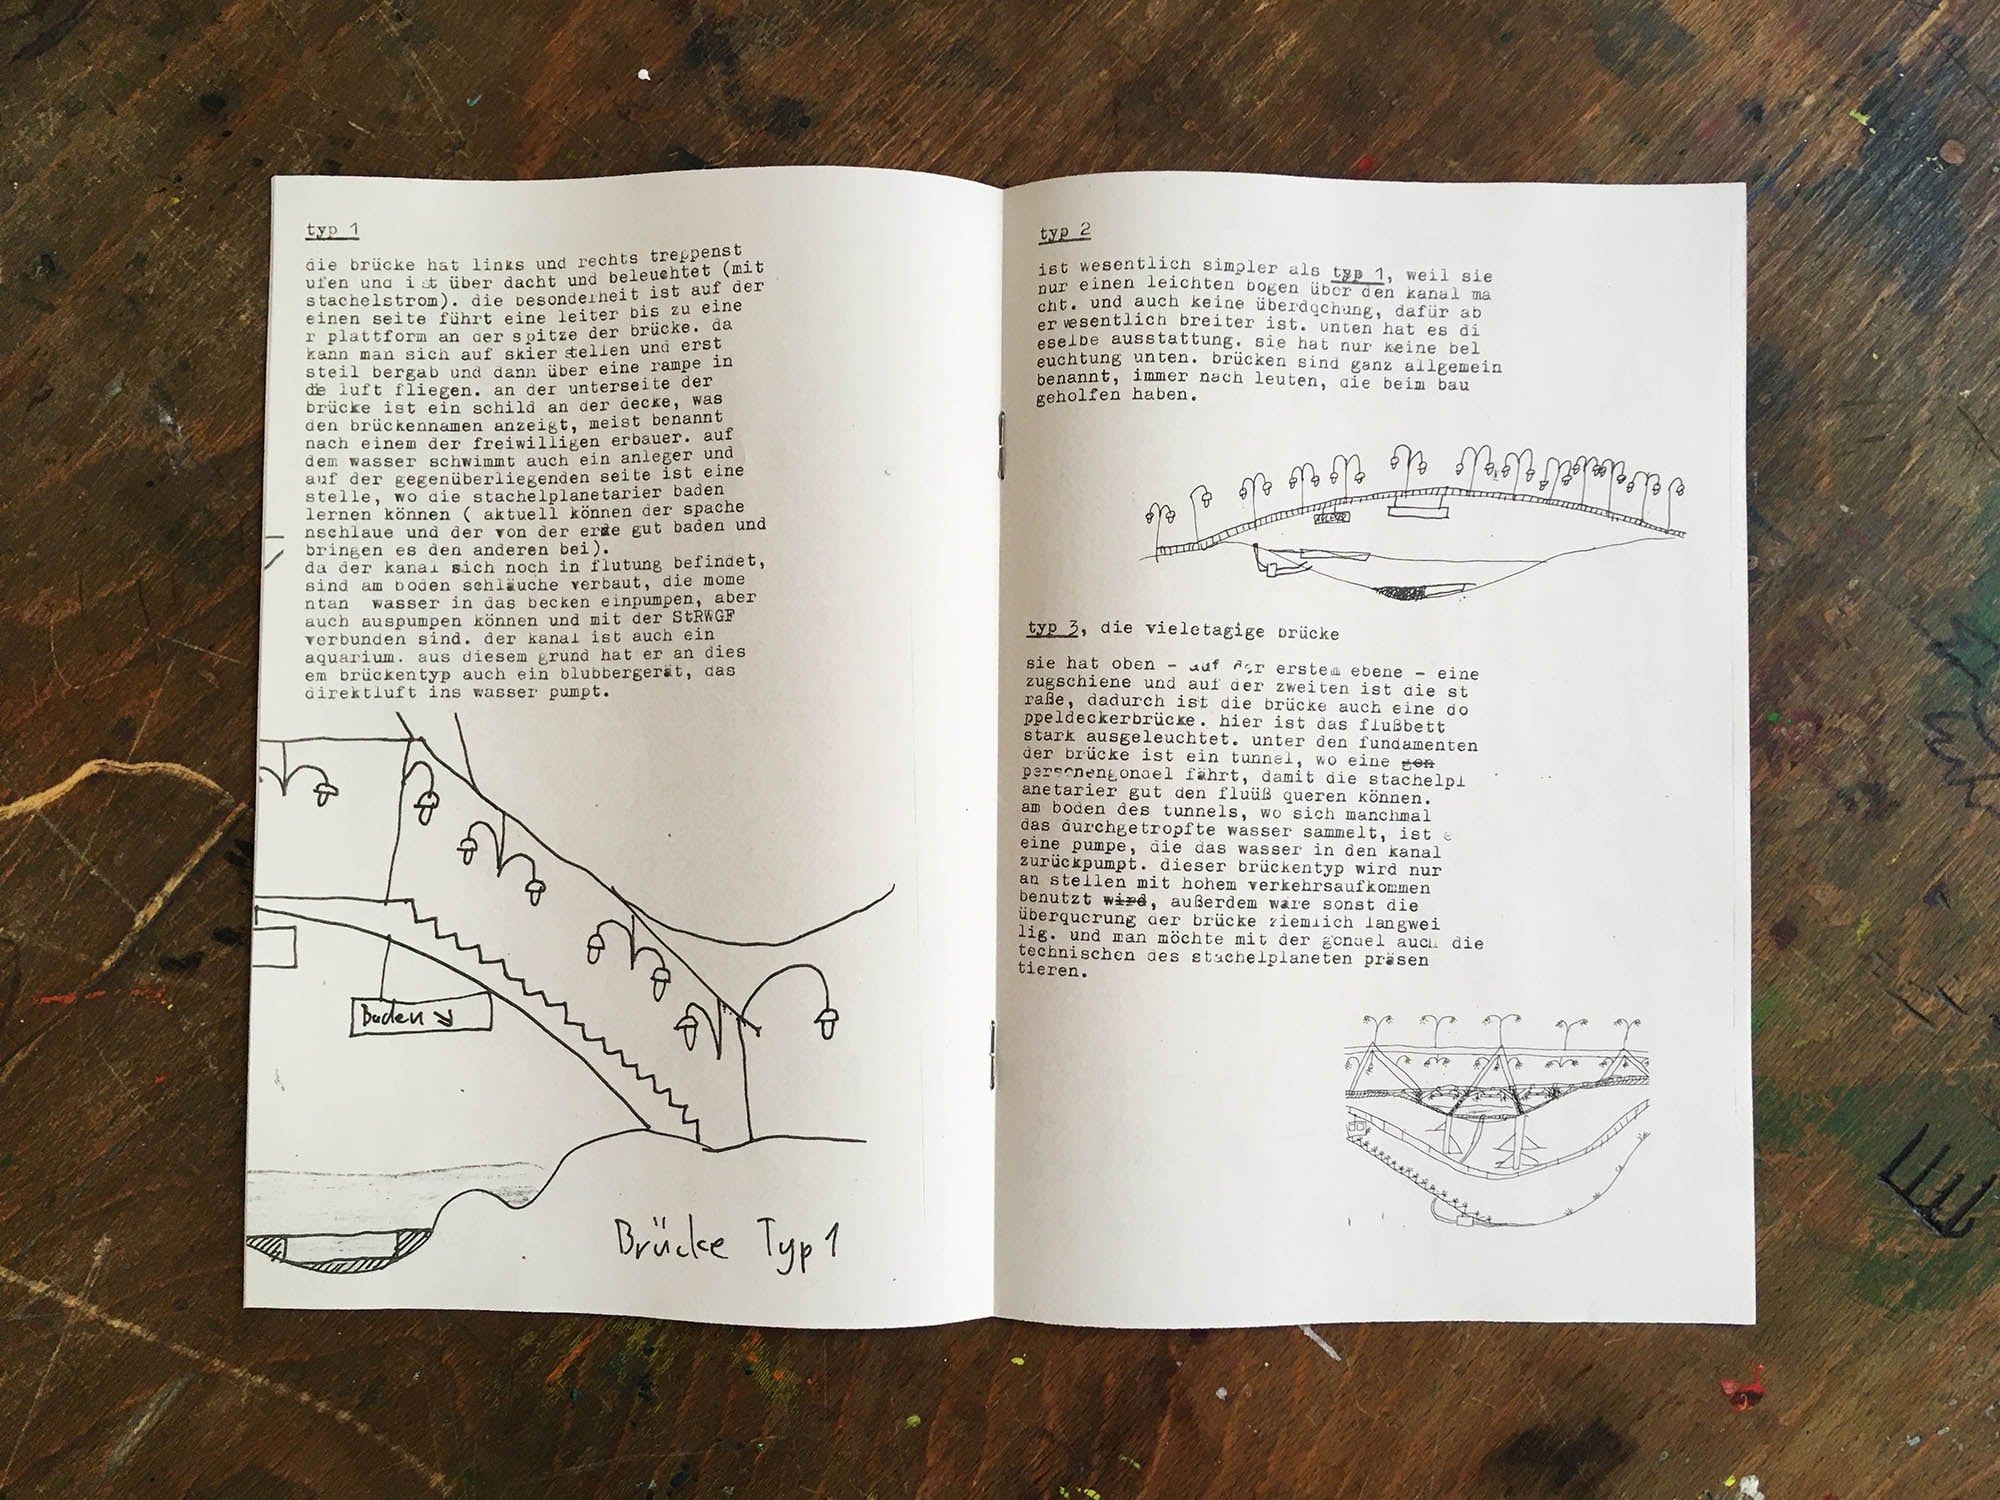 typ 1
die brücke hat links und rechts treppenst
ufen und ist über dacht und beleuchtet (mit
stachelstrom). die besonderheit ist auf der
einen seite führt eine leiter bis zu eine
r plattform an der spitze der brücke. da
kann man sich auf skier stellen und erst
steil bergab und dann über eine rampe in
die luft fliegen. an der unterseite der
brücke ist ein schild an der decke, was
den brückennamen anzeigt, meist benannt
nach einem der freiwilligen erbauer. auf
dem wasser schwimmt auch ein anleger und
auf der gegenüberliegenden seite ist eine
stelle, wo die stachelplanetarier baden
lernen können ( aktuell können der spache
nschlaue und der von der erde gut baden und
bringen es den anderen bei).
da der kanal sich noch in flutung befindet,
sind am boden schläuche verbaut, die mome
ntan  wasser in das becken einpumpen, aber
auch auspumpen können und mit der StRWGF
verbunden sind. der kanal ist auch ein
aquarium. aus diesem grund hat er an dies
em brückentyp auch ein blubbergerät, das
direktluft ins wasser pumpt.
Baden
Brücke Typ 1
typ 2
ist wesentlich simpler als typ 1, weil sie
nur einen leichten bogen über den kanal ma
cht. und auch keine überdqchung, dafür ab
er wesentlich breiter ist. unten hat es di
eselbe ausstattung. sie hat nur keine bel
euchtung unten. brücken sind ganz allgemein
benannt, immer nach leuten, die beim bau
geholfen haben.
typ 3, die vieletagige brücke
sie hat oben - auf der erstem ebene - eine
zugschiene und auf der zweiten ist die st
raße, dadurch ist die brücke auch eine do
ppeldeckerbrücke. hier ist das flußbett
stark ausgeleuchtet. unter den fundamenten
der brücke ist ein tunnel, wo eine gon
personengondel fährt, damit die stachelpl
anetarier gut den fluüß queren können.
am boden des tunnels, wo sich manchmal
das durchgetropfte wasser sammelt, ist e
eine pumpe, die das wasser in den kanal
zurückpumpt. dieser brückentyp wird nur
an stellen mit hohem verkehrsaufkommen
benutzt wird, außerdem wäre sonst die
überquerung der brücke ziemlich langwei
lig. und man möchte mit der gondel auch die
technischen des stachelplaneten präsen
tieren.